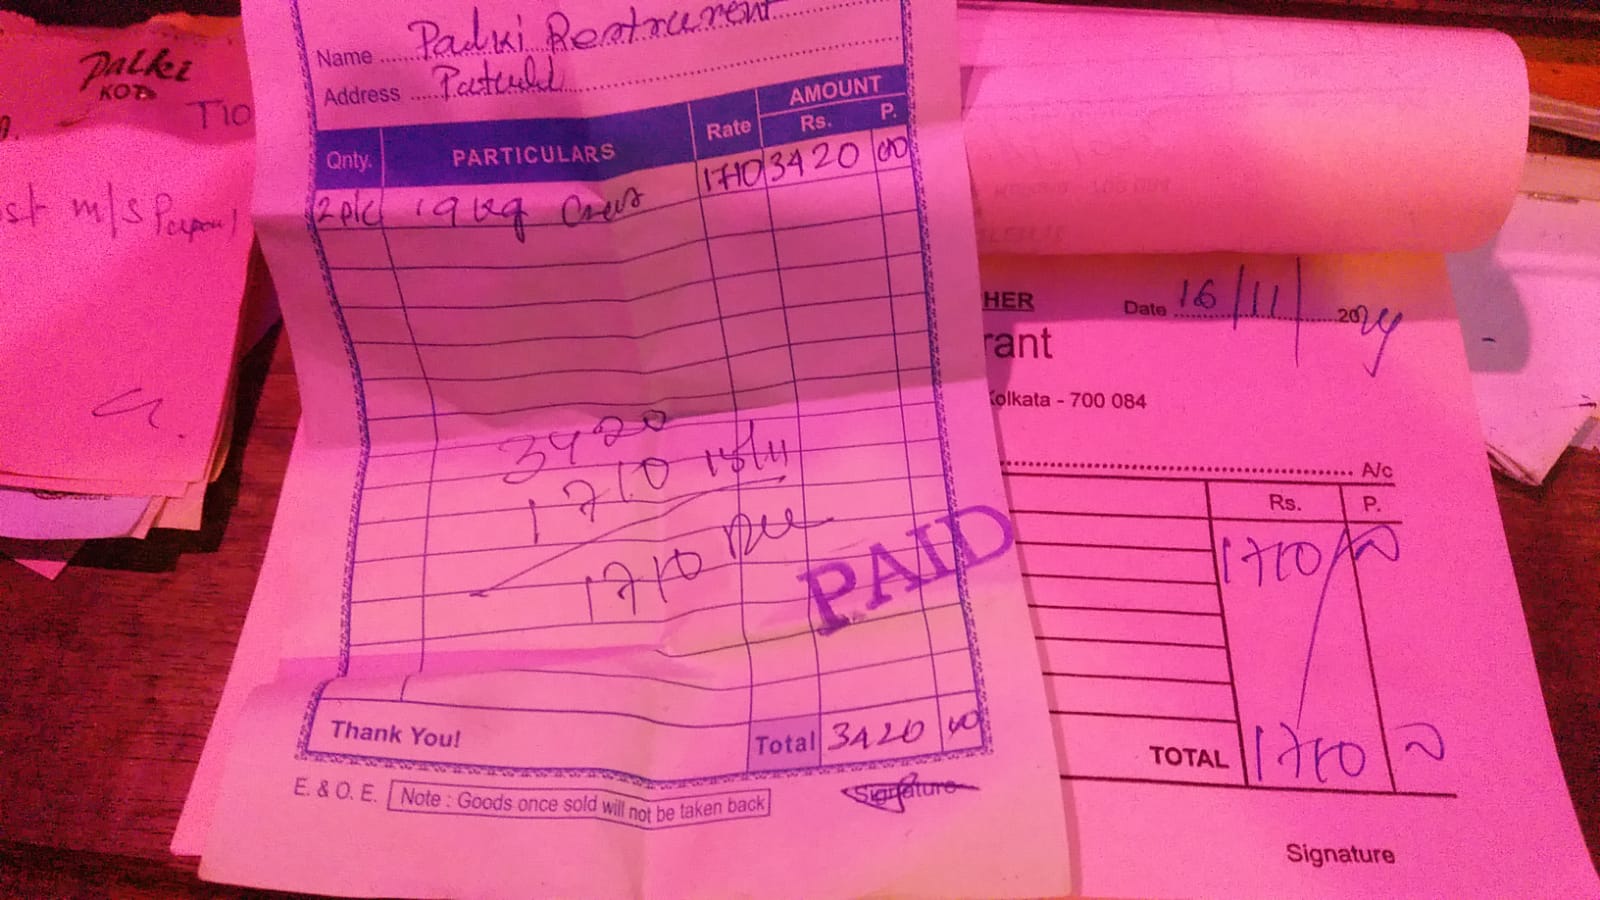 Palki
KOT
T10
m/s
Name Padki Restraurent
Address Patuli
Qnty. PARTICULARS Rate AMOUNT
Rs. P.
2 pic 19 kg 1710 3420 00
3420
1710 15/11
1710 Due
PAID
Thank You! Total 3420 00
E. & O. E. Note : Goods once sold will not be taken back Signature
HER Date 16/11/2024
rant
Kolkata - 700 084
A/c
Rs. P.
1710
TOTAL 1710
Signature